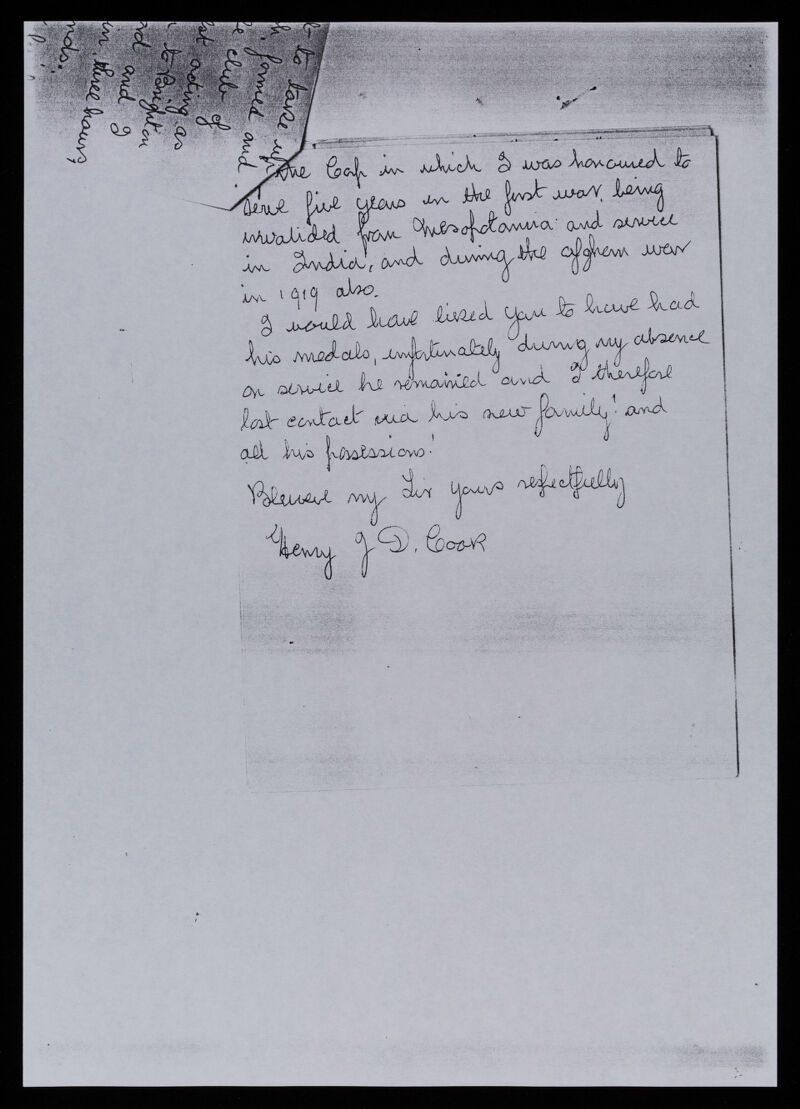 to take up
formed and
club of
acting as
to Brighton
and I
in three hours,
the Corp in which I was honoured to
serve five years in the first war, being
invalided from Mesopotamia and service
in India, and during the afghan war
in 1919 also.
I would have liked you to have had
his medals, unfortunately during my absence
on service he remarried and I therefore
lost contact via his new family! and
all his possessions!
Believe my Sir yours respectfully
Henry J D. Cook